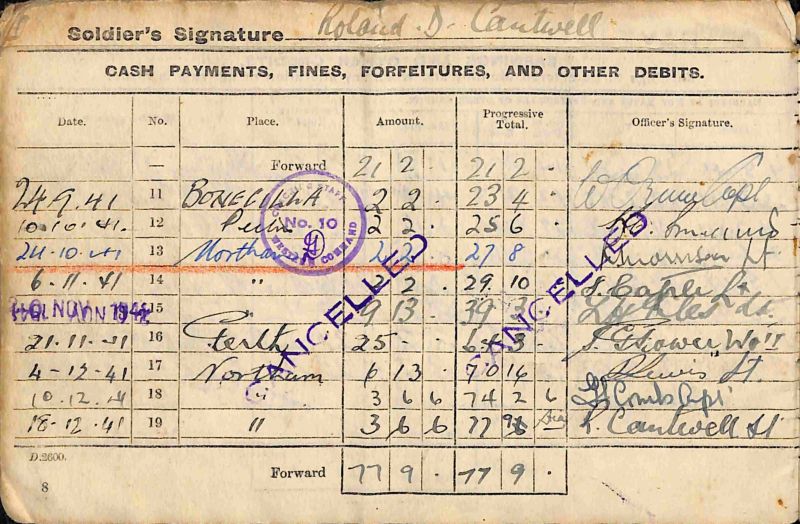 Soldier's Signature Roland D. Cantwell
CASH PAYMENTS, FINES, FORFEITURES, AND OTHER DEBITS.
Date. No. Place. Amount. Progressive Total. Officer's Signature.
— Forward 21 2 . 21 2 .
24.9.41 11 BONEGILLA 2 2 . 23 4 .
10.10.41. 12 Perth 2 2 . 25 6 .
24.10.41 13 Northam 2 2 . 27 8 . Lt
No. 10
WESTERN COMMAND
6.11.41 14 " 2 2 . 29 10 . Lt
NOV 1941 15 9 13 . 39 3 .
21.11.41 16 Perth 25 - . 64 3 . WO II
4-12-41 17 Northam 6 13 . 70 16 Lt.
10.12.41 18 " 3 6 6 74 2 6 Capt
18.12.41 19 " 3 6 6 77 9 R. Cantwell Lt
CANCELLED
CANCELLED
D.2600. Forward 77 9 . 77 9 .
8